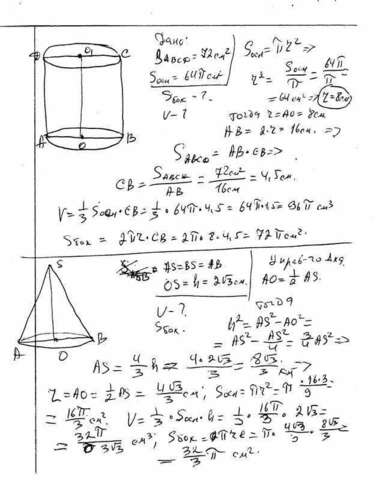 Дано:
S_ABCD = 72см²
S_осн = 64π см²
S_бок - ?
V - ?
S_осн = πr² =>
r² = S_осн/π = 64π/π =
= 64см² => r = 8см
тогда r = AO = 8см
AB = 2·r = 16см. =>
D O₁ C
A O B
S_ABCD = AB · CB =>
CB = S_ABCD/AB = 72см²/16см = 4,5см.
V = 1/3 S_осн · CB = 1/3 · 64π · 4,5 = 64π·1,5 = 96π см³
S_бок = 2πr · CB = 2π · 8 · 4,5 = 72π см².
S
A O B
AS = BS = AB
OS = h = 2√3см.
V - ?
S_бок.
AO = 1/2 AS.
тогда
h² = AS² - AO² =
= AS² - AS²/4 = 3/4 AS² =>
AS = 4/3 h = 4·2√3/3 = 8√3/3 см =>
r = AO = 1/2 AS = 4√3/3 см; S_осн = πr² = π · 16·3/9 =
= 16π/3 см². V = 1/3 · S_осн · h = 1/3 · 16π/3 · 2√3 =
= 32π/3√3 см³; S_бок = πrl = π · 4√3/3 · 8√3/3 =
= 32/3 π см².